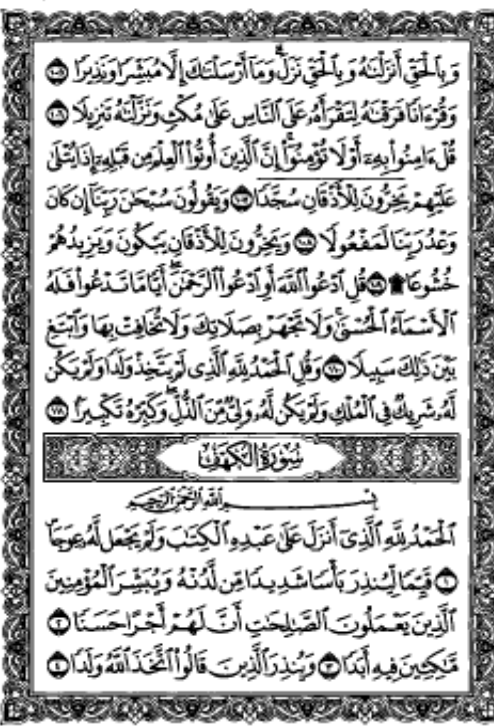 وَبِٱلْحَقِّ أَنزَلْنَٰهُ وَبِٱلْحَقِّ نَزَلَۗ وَمَآ أَرْسَلْنَٰكَ إِلَّا مُبَشِّرًا وَنَذِيرًا ١٠٥
وَقُرْءَانًا فَرَقْنَٰهُ لِتَقْرَأَهُۥ عَلَى ٱلنَّاسِ عَلَىٰ مُكْثٍ وَنَزَّلْنَٰهُ تَنزِيلًا ١٠٦
قُلْ ءَامِنُوا۟ بِهِۦٓ أَوْ لَا تُؤْمِنُوٓا۟ۚ إِنَّ ٱلَّذِينَ أُوتُوا۟ ٱلْعِلْمَ مِن قَبْلِهِۦٓ إِذَا يُتْلَىٰ
عَلَيْهِمْ يَخِرُّونَ لِلْأَذْقَانِ سُجَّدًا ١٠٧ وَيَقُولُونَ سُبْحَٰنَ رَبِّنَآ إِن كَانَ
وَعْدُ رَبِّنَا لَمَفْعُولًا ١٠٨ وَيَخِرُّونَ لِلْأَذْقَانِ يَبْكُونَ وَيَزِيدُهُمْ
خُشُوعًا ۩ ١٠٩ قُلِ ٱدْعُوا۟ ٱللَّهَ أَوِ ٱدْعُوا۟ ٱلرَّحْمَٰنَۖ أَيًّا مَّا تَدْعُوا۟ فَلَهُ
ٱلْأَسْمَآءُ ٱلْحُسْنَىٰۚ وَلَا تَجْهَرْ بِصَلَاتِكَ وَلَا تُخَافِتْ بِهَا وَٱبْتَغِ
بَيْنَ ذَٰلِكَ سَبِيلًا ١١٠ وَقُلِ ٱلْحَمْدُ لِلَّهِ ٱلَّذِى لَمْ يَتَّخِذْ وَلَدًا وَلَمْ يَكُن
لَّهُۥ شَرِيكٌ فِى ٱلْمُلْكِ وَلَمْ يَكُن لَّهُۥ وَلِىٌّ مِّنَ ٱلذُّلِّۖ وَكَبِّرْهُ تَكْبِيرًۢا ١١١
سُورَةُ الكَهْفِ
بِسْمِ ٱللَّهِ ٱلرَّحْمَٰنِ ٱلرَّحِيمِ
ٱلْحَمْدُ لِلَّهِ ٱلَّذِىٓ أَنزَلَ عَلَىٰ عَبْدِهِ ٱلْكِتَٰبَ وَلَمْ يَجْعَل لَّهُۥ عِوَجَاۜ
١ قَيِّمًا لِّيُنذِرَ بَأْسًا شَدِيدًا مِّن لَّدُنْهُ وَيُبَشِّرَ ٱلْمُؤْمِنِينَ
ٱلَّذِينَ يَعْمَلُونَ ٱلصَّٰلِحَٰتِ أَنَّ لَهُمْ أَجْرًا حَسَنًا ٢
مَّٰكِثِينَ فِيهِ أَبَدًا ٣ وَيُنذِرَ ٱلَّذِينَ قَالُوا۟ ٱتَّخَذَ ٱللَّهُ وَلَدًا ٤